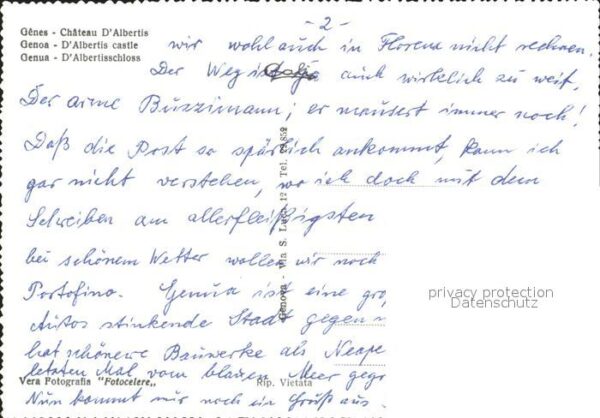 Gênes - Château D'Albertis
Genoa - D'Albertis castle
Genua - D'Albertisschloss
- 2 -
wir wohl auch in Florenz nicht rechnen.
Der Weg ist ja auch wirklich zu weit.
Der arme Buzzimann; er mausert immer noch!
Daß die Post so spärlich ankommt, kann ich
gar nicht verstehen, wo ich doch mit dem
Schreiben am allerfleißigsten
bei schönem Wetter wollen wir noch
Portofino. Genua ist eine gro
Autos stinkende Stadt gegen
hat schönere Bauwerke als Neape
letzten Mal vom blauen Meer gegr
Nun kommt nur noch ein Gruß aus
Genova - Via S. Luca, 12 - Tel. 28852
Vera Fotografia "Fotocelere"
Rip. Vietata
privacy protection
Datenschutz